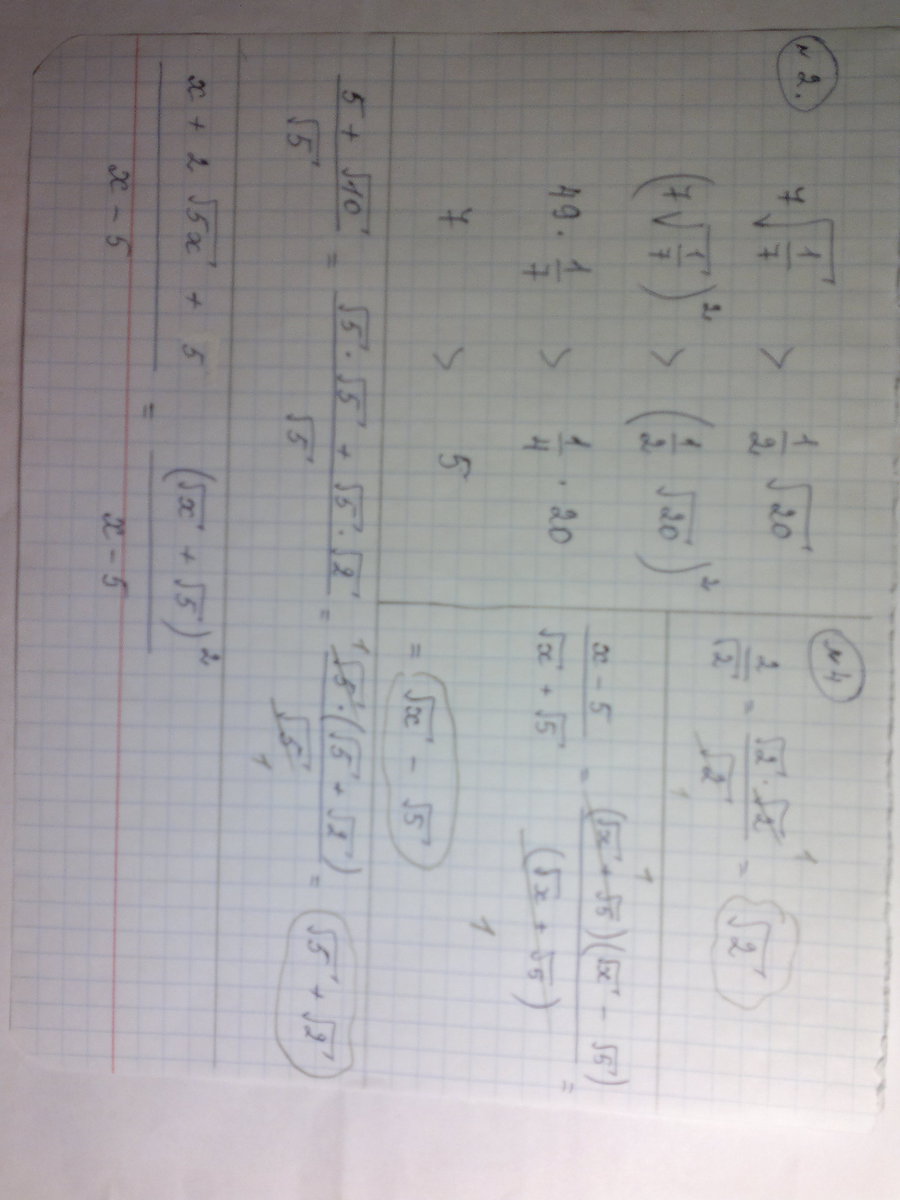 № 2.
7√(1/7) > 1/2 √20
(7√(1/7))² > (1/2 √20)²
49 · 1/7 > 1/4 · 20
7 > 5
№ 4
2/√2 = √2 · √2 / √2 = √2
1
1
(x - 5)/(√x + √5) = (√x + √5)(√x - √5) / (√x + √5) =
1
1
= √x - √5
(5 + √10)/√5 = (√5 · √5 + √5 · √2)/√5 = √5 · (√5 + √2)/√5 = √5 + √2
1
1
(x + 2√5x + 5)/(x - 5) = (√x + √5)²/(x - 5)